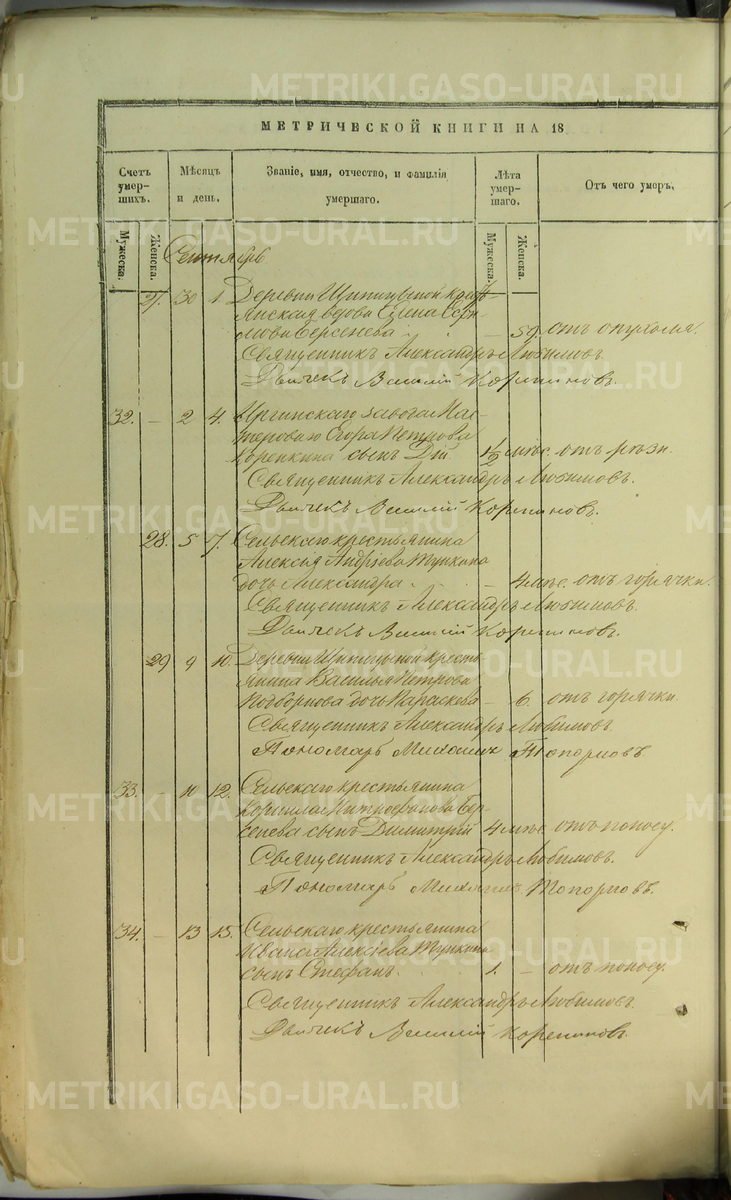 METRIKI.GASO-URAL.RU
МЕТРИЧЕСКОЙ КНИГИ НА 18
Счетъ умершихъ.
Мѣсяцъ и день.
Званіе, имя, отчество, и фамилія умершаго.
Лѣта умершаго.
Отъ чего умеръ.
Мужеска. Женска. Мужеска. Женска.
Сентябрь
27. 30 1.
вдова Елена
Берсенева — 59. отъ опухоли.
Священникъ Александръ Любимовъ.
Дьячекъ Василій Корепановъ.
32. — 2 4. Иргинскаго завода Мас-
тероваго Егора Петрова
сынъ Дій 1½ мѣс. отъ рѣзи.
Священникъ Александръ Любимовъ.
Дьячекъ Василій Корепановъ.
28. 5 7. Сельскаго крестьянина
Алексѣя Андреева Тупкина
дочь Александра — 4 мѣс. отъ горячки.
Священникъ Александръ Любимовъ.
Дьячекъ Василій Корепановъ.
29 9 10. Деревни кресть-
янина Василья Петрова
дочь Параскева — 6. отъ горячки.
Священникъ Александръ Любимовъ.
Пономарь Михаилъ Топорковъ.
33. — 10 12. Сельскаго крестьянина
Корнила Митрофанова Бер-
сенева сынъ Димитрій 4 мѣс. отъ поносу.
Священникъ Александръ Любимовъ.
Пономарь Михаилъ Топорковъ.
34. — 13 15. Сельскаго крестьянина
Ивана Алексѣева Тупкина
сынъ Стефанъ 1. — отъ поносу.
Священникъ Александръ Любимовъ.
Дьячекъ Василій Корепановъ.